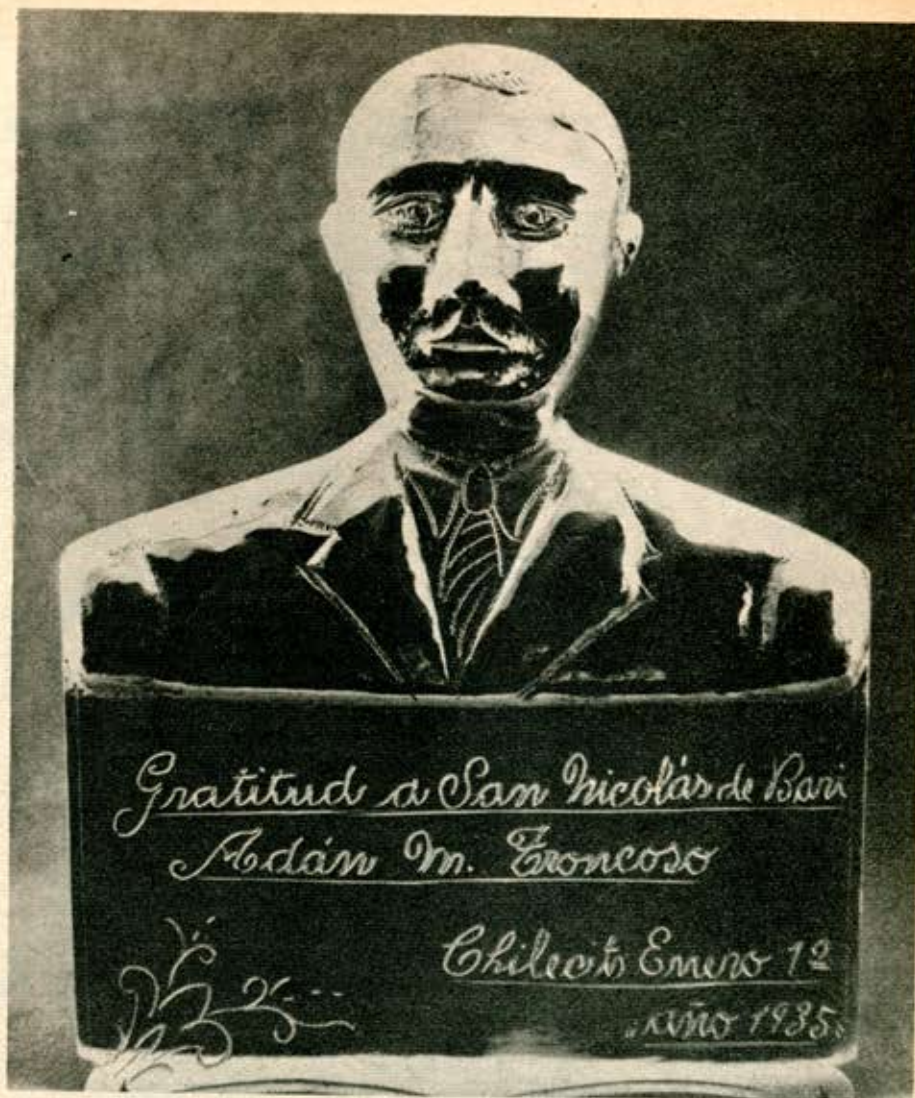 Gratitud a San Nicolás de Bari
Adán M. Troncoso
Chilecito Enero 1º
año 1935